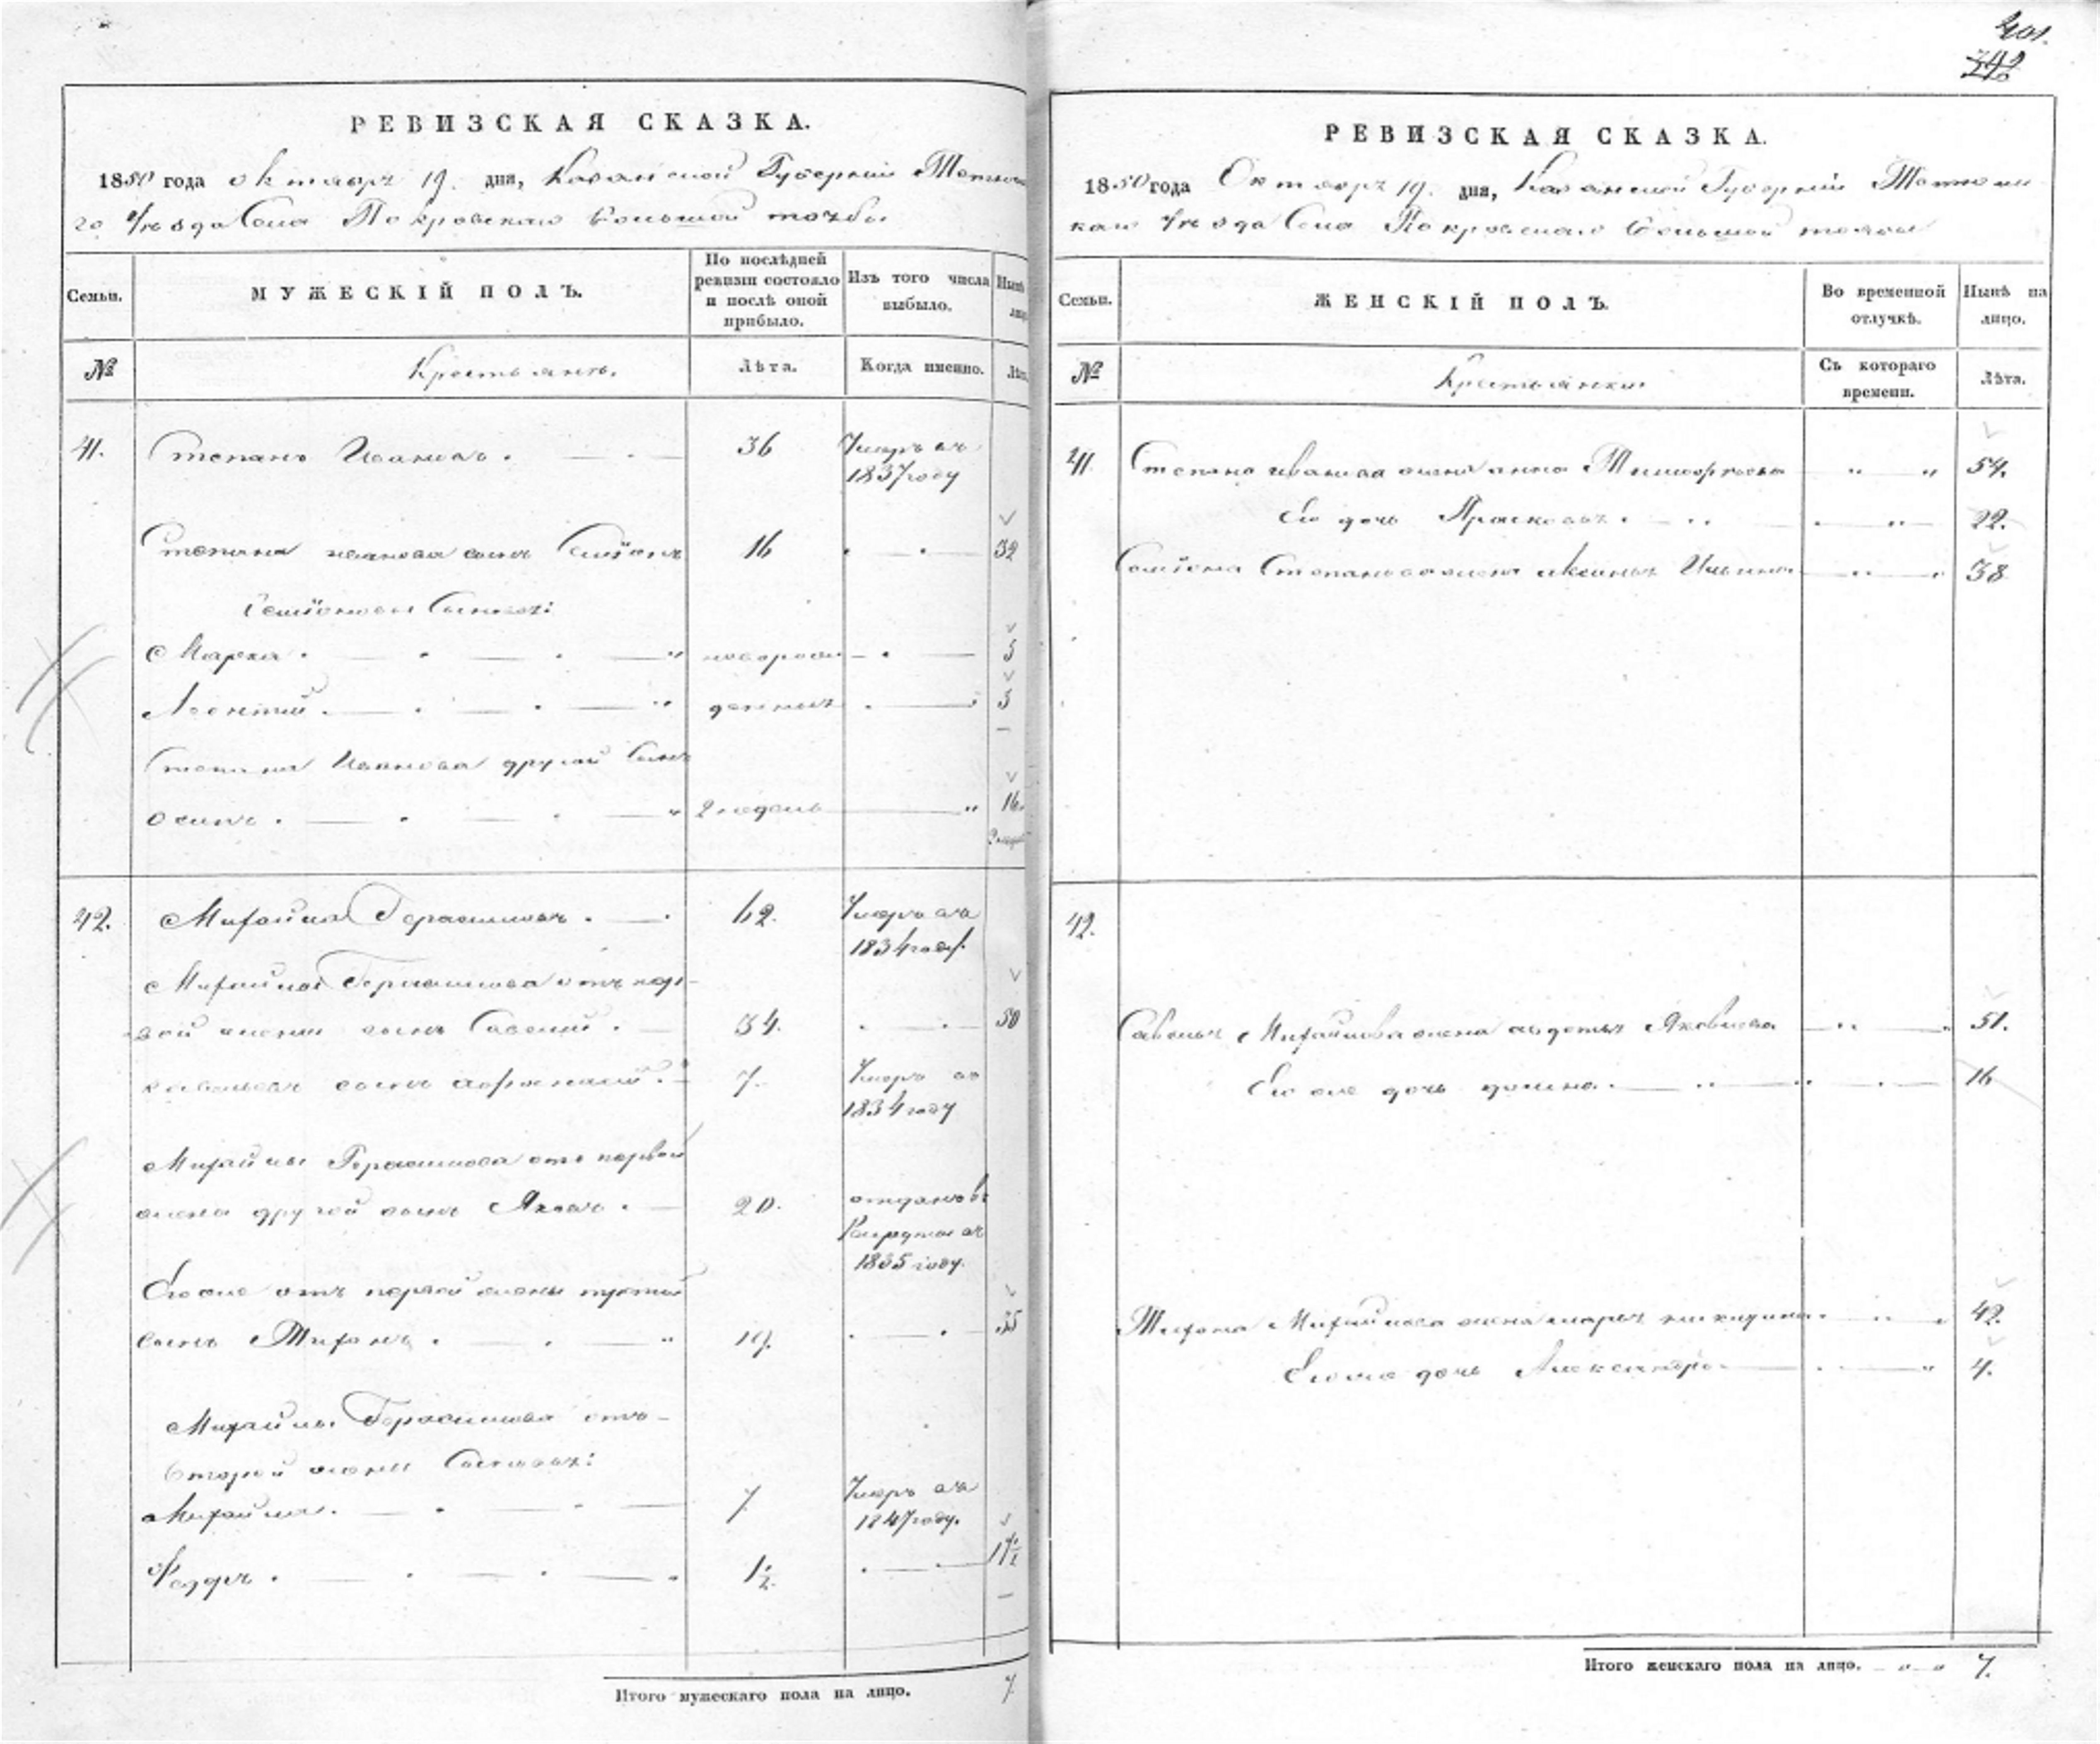 401.
242
РЕВИЗСКАЯ СКАЗКА.
1850 года октября 19. дня, Казанской Губернии Тетюшска
го уѣзда Села Покровскаго большой тожбы
Семьи.
МУЖЕСКІЙ ПОЛЪ.
По послѣдней ревизіи состояло и послѣ оной прибыло.
Изъ того числа выбыло.
Нынѣ
№
Крестьянъ.
Лѣта.
Когда именно.
Лѣта
41.
Степанъ Ивановъ.
36
Умеръ въ
1837 году
Степана иванова сынъ Семіонъ
16
32
Семіоновы Сыновья:
Марка.
новорож
5
Леонтій.
денныя
5
Степана Иванова другой Сынъ
осипъ.
2 недель
16.
42.
Михайла Герасимовъ.
62.
Умеръ въ
1834 году.
Михайлы Герасимова отъ пер-
вой жены сынъ Савелий.
34.
50
савельевъ сынъ афонасий.
7.
Умеръ въ
1834 году
Михайлы Герасимова отъ первой
жены другой сынъ Яковъ.
20.
отданъ въ
Рекруты въ
1835 году.
Егоже отъ первой жены третий
сынъ Тихонъ.
19.
35
Михайлы Герасимова отъ
второй жены Сыновья:
Михайла.
7
Умеръ въ
1847 году.
Федоръ.
1 1/2
17 1/2
Итого мужескаго пола на лицо.
7
РЕВИЗСКАЯ СКАЗКА.
1850 года Октября 19. дня, Казанской Губернии Тетюши
каго уѣзда Села Покровскаго большой тожбы
Семьи.
ЖЕНСКІЙ ПОЛЪ.
Во временной отлучкѣ.
Нынѣ на лицо.
№
Крестьянки
Съ котораго времени.
Лѣта.
41
Степана иванова жена анна Тимофеева
54.
Его дочь Прасковья.
22.
Семіона Степанова жена аксинья Ильина
38
42.
Савелья Михайлова жена авдотья Яковлева
51.
Его же дочь домна.
16
Тихона Михайлова жена марья никитина.
42.
Егоже дочь Александра
4.
Итого женскаго пола на лицо. 7.